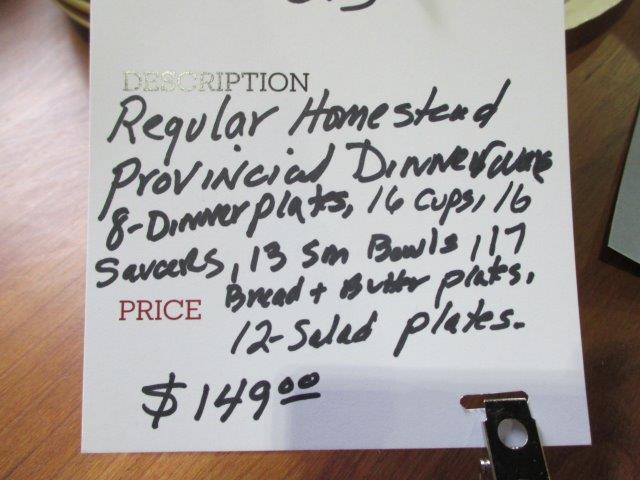 DESCRIPTION
Regular Homestead
Provincial Dinnerware
8-Dinner plats, 16 cups, 16
Saucers, 13 sm Bowls, 17
Bread + Butter plats,
PRICE
12-Salad plates.
$149.00